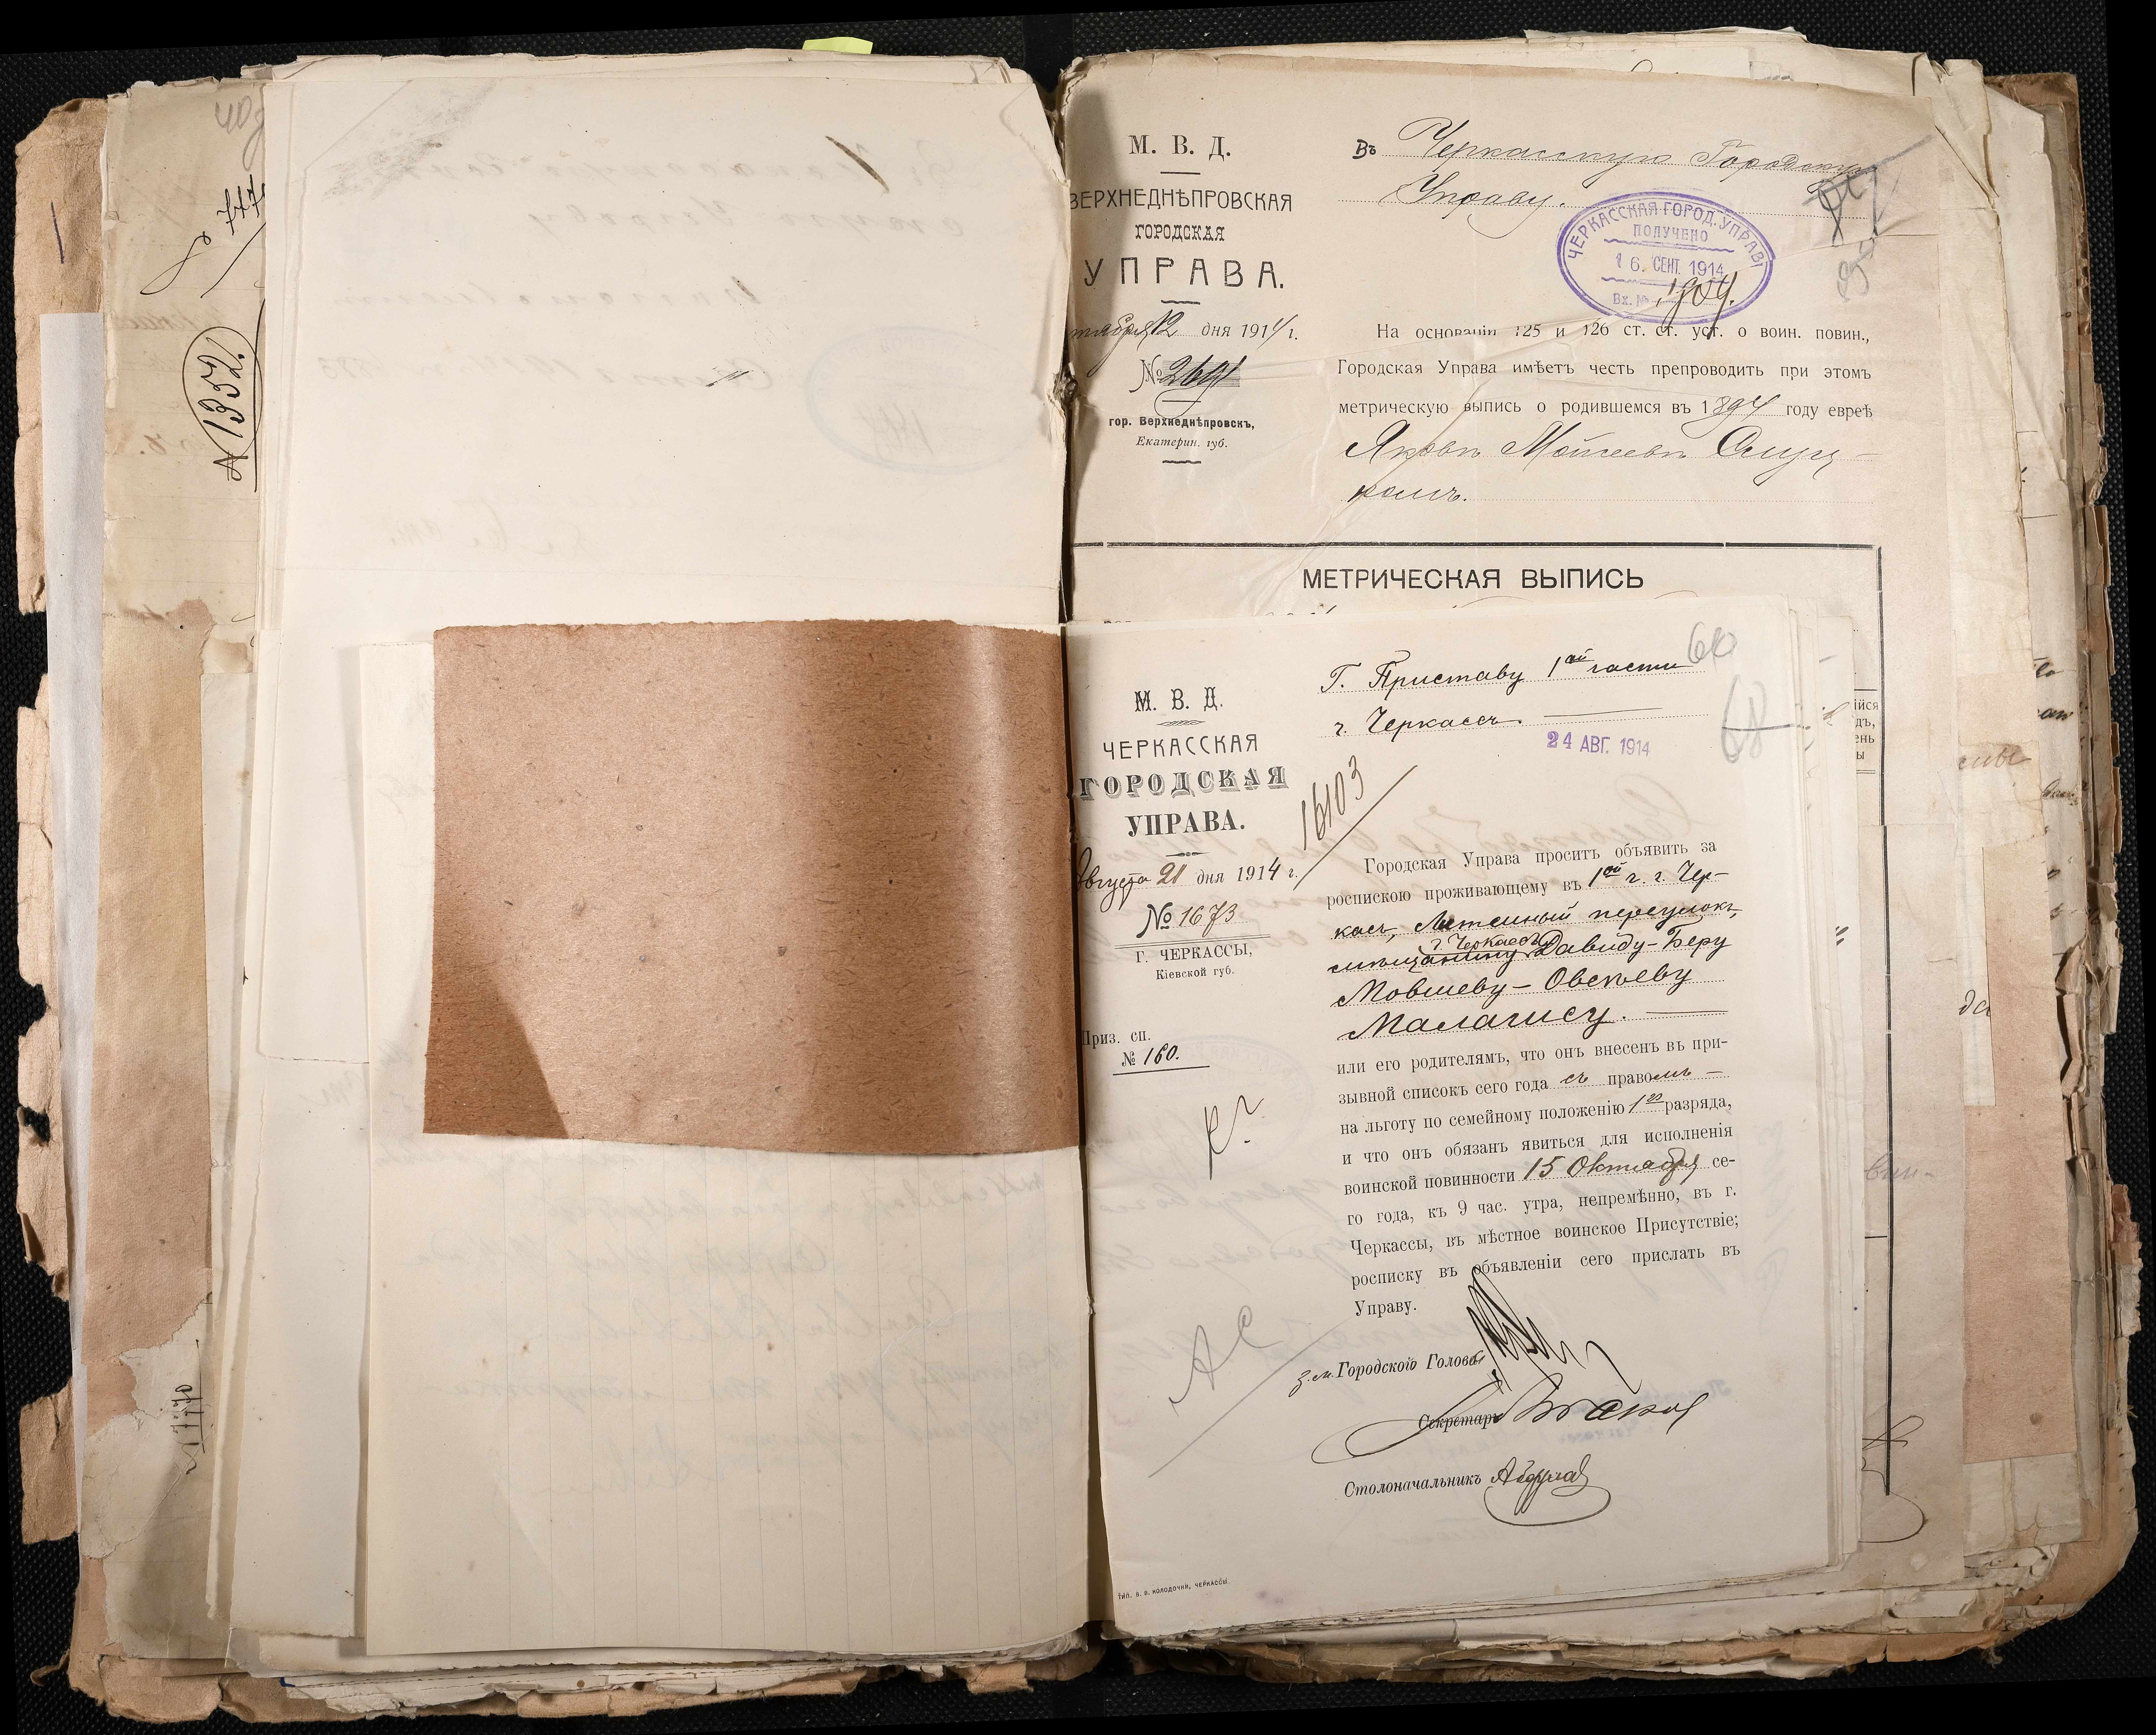 777
1352
М. В. Д.
ВЕРХНЕДНѢПРОВСКАЯ
ГОРОДСКАЯ
УПРАВА.
12 дня 1914 г.
№ 2691
гор. Верхнеднѣпровскъ,
Екатерин. губ.
Въ Черкасскую Городскую
Управу.
ЧЕРКАССКАЯ ГОРОД. УПРАВ
ПОЛУЧЕНО
16. СЕНТ. 1914
Вх. № 1909.
На основаніи 125 и 126 ст. ст. уст. о воин. повин.,
Городская Управа имѣетъ честь препроводить при этомъ
метрическую выпись о родившемся въ 1894 году евреѣ
Яковѣ Мошеевѣ
МЕТРИЧЕСКАЯ ВЫПИСЬ
60
68
М. В. Д.
ЧЕРКАССКАЯ
ГОРОДСКАЯ
УПРАВА.
Августа 21 дня 1914 г.
№ 1673
Г. ЧЕРКАССЫ,
Кіевской губ.
Приз. сп.
№ 160.
Г. Приставу 1ой части
г. Черкассъ.
24 АВГ. 1914
16103
Городская Управа проситъ объявить за
роспискою проживающему въ 1ой ч. г. Чер-
кассъ, переулокъ,
г. Черкассъ
мѣщанину Давиду-Беру
Мовшеву-Овсѣеву
Малагису.
или его родителямъ, что онъ внесенъ въ при-
зывной списокъ сего года съ правомъ
на льготу по семейному положенію 1го разряда,
и что онъ обязанъ явиться для исполненія
воинской повинности 15 Октября се-
го года, къ 9 час. утра, непремѣнно, въ г.
Черкассы, въ мѣстное воинское Присутствіе;
росписку въ объявленіи сего прислать въ
Управу.
З. м. Городского Головы
Секретарь
Столоначальникъ
ТИП. В. В. КОЛОДОЧКИ, ЧЕРКАССЫ.